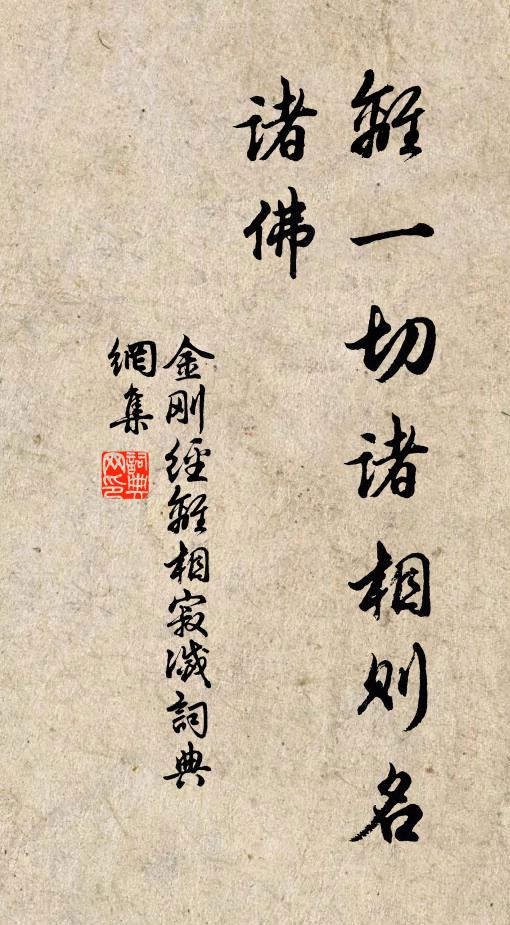 離一切諸相則名
諸佛
金剛經離相寂滅詞典
網集
詞典網印